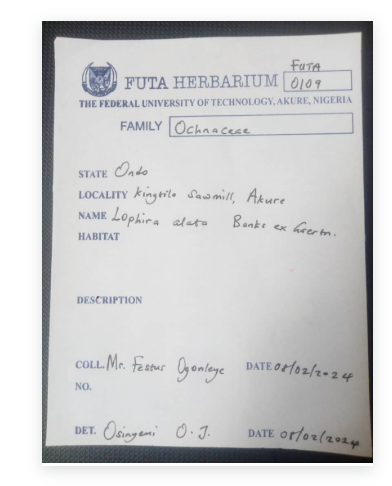 FUTA HERBARIUM FUTA 0109
THE FEDERAL UNIVERSITY OF TECHNOLOGY, AKURE, NIGERIA
FAMILY Ochnaceae
STATE Ondo
LOCALITY Sawmill, Akure
NAME Lophira alata Banks ex Gaertn.
HABITAT
DESCRIPTION
COLL. Mr. Festus DATE 08/02/2024
NO.
DET. Osinyemi O. J. DATE 08/02/2024